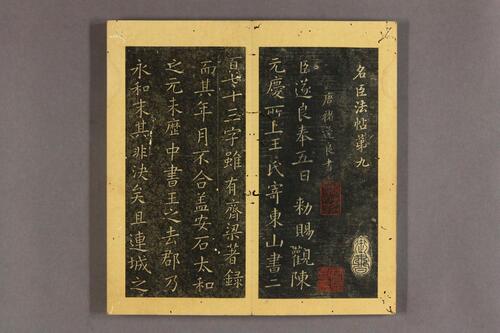 名臣法帖第九
唐褚遂良書
臣遂良奉五日 勑賜觀陳
元慶所上王氏寄東山書二
百七十三字雖有齊梁著錄
而其年月不合盖安石太和
之元未歷中書王之去郡乃
永和末其非決矣且連城之